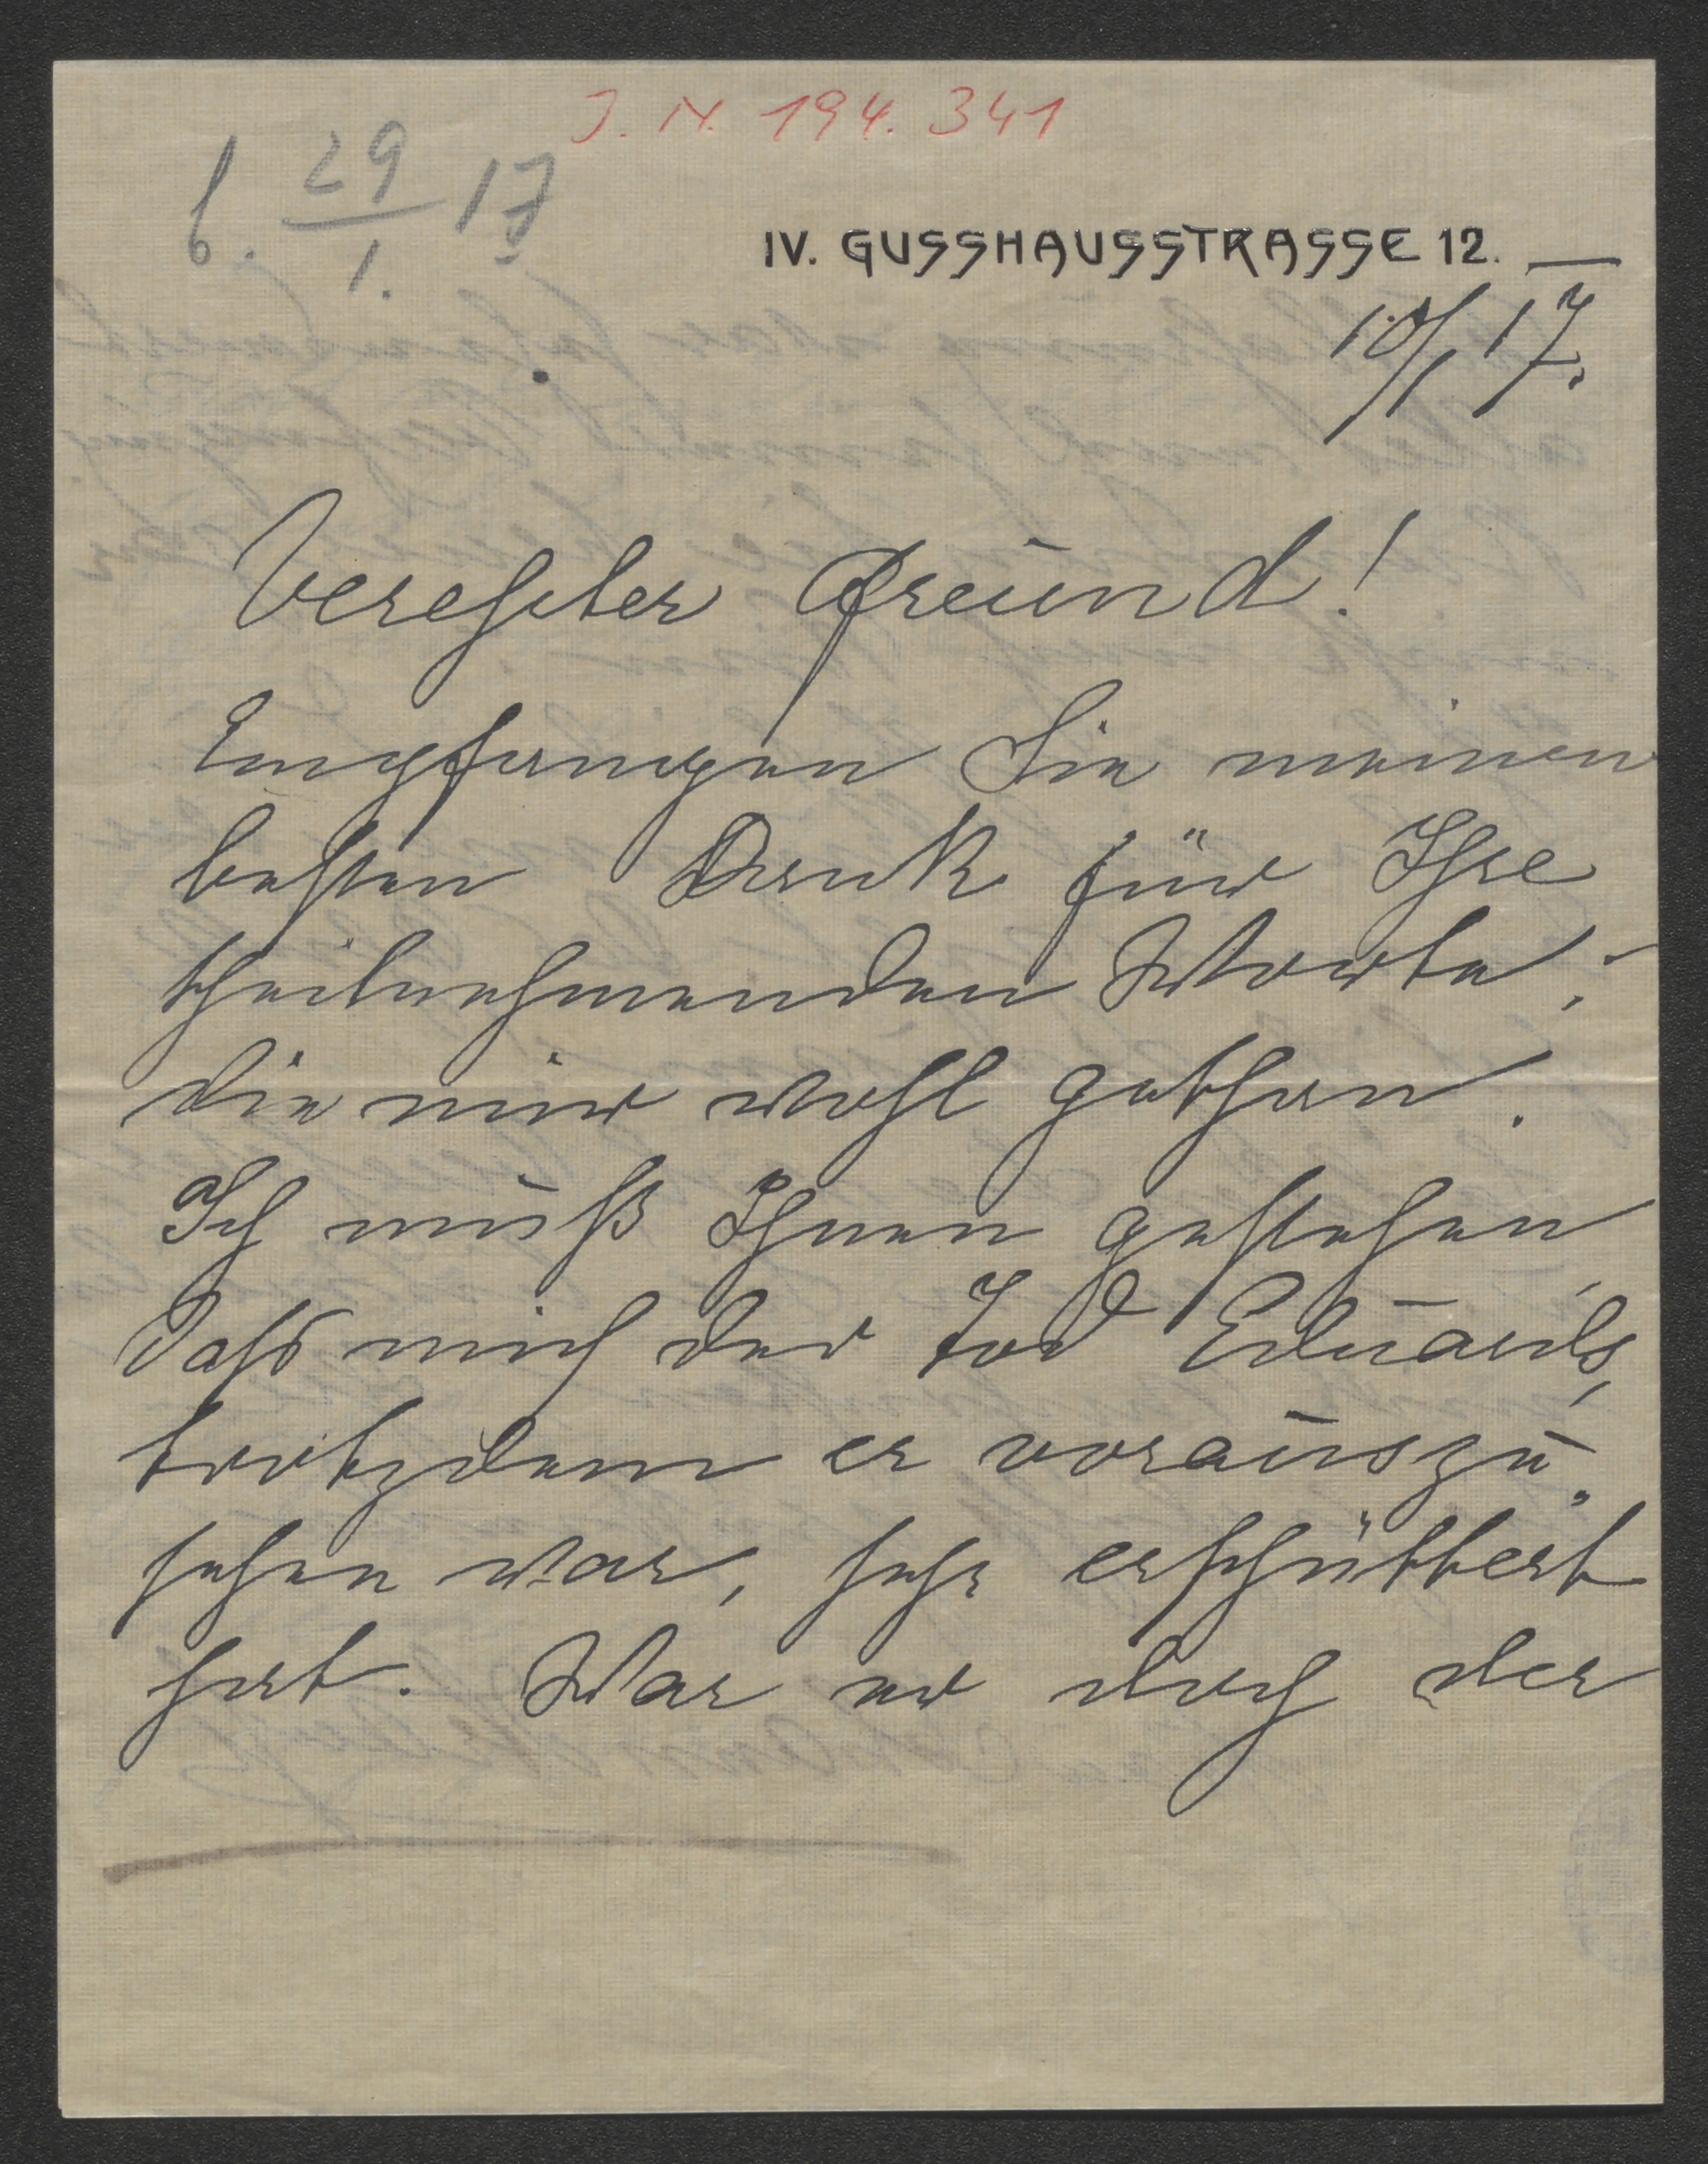 J. N. 194.341
b. 29/1. 17
IV. GUSSHAUSSTRASSE 12.
10/1 17.
Verehrter Freund!
Empfangen Sie meinen
besten Dank für Ihre
theilnehmenden Worte,
die mir wohl gethan.
Ich muß Ihnen gestehen
daß mich der Tod Eduards,
trotzdem er vorauszu-
sehen war, sehr erschüttert
hat. War er doch der